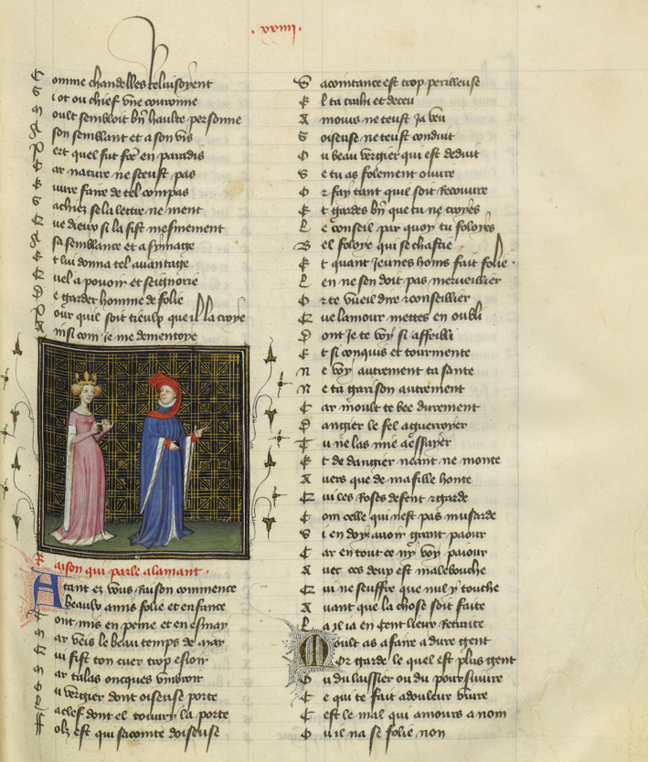 .xxiiij.
Comme chandelles reluisoyent
Sot ou chief vne couronne
Moult sembloit bñ haulte personne
A son semblant et a son vis
Pert quel fut fce en paradis
Car nature ne sceust pas
Euure faire de tel compas
Sachiez se la lettre ne ment
Que dieux si la fist mesmement
A sa semblance et a symage
Et lui donna tel auantage
Quel a pouoir et seignorie
De garder homme de folie
Pour quil soit tieulx que il la croye
Ainsi com je me dementoye
Raison qui parle a lamant .
Atant ez vous Raison commence
beaulx amis folie et enfance
Tont mis en peine et en esmay
Mar veis le beau temps de may
Qui fist ton cuer trop esioir
Mar talas oncques vmbroier
Ou vergier dont oiseuse porte
La clef dont el touury la porte
Folz est qui sacointe doiseuse
Sacointance est trop perilleuse
El ta trahi et deceu
Amours ne teust Ja veu
Soiseuse ne teust conduit
Ou beau vergier qui est deduit
Se tu as folement ouure
Or fay tant quil soit Recouure
Et gardes bñ que tu ne croyes
Le conseil par quoy tu foloyes
Bel foloye qui se chastie
Et quant Jeunes homs fait folie .
Len ne sen doit pas merueillier
Or te vueil dire &conseillier
Que lamour mettes en oubli
Dont je te voy si affeibli
Et si conquis et tourmente
Ne voy autrement ta sante
Ne ta garison autrement
Car moult te bee durement
Dangier le fel a guerroyer
Tu ne las mie a essayer
Et de dangier neant ne monte
Auers que de ma fille honte
Qui les Roses defent &garde
Com celle qui nest pas musarde
Si en doy auoir grant paour
Car en tout ce ny voy paiour
Auec ces deux est malebouche
Qui ne seuffre que nul y touche
Auant que la chose soit faite
La il ia en cent lieux Retraite
Moult as a faire a dure gent
Or garde le quel est plus gent
Ou du laissier ou du poursuiure
Ce qui te fait a douleur viure
Cest le mal qui amours a nom
Ou il na se folie non